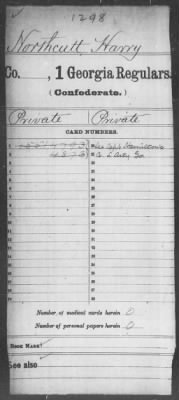 1298
Northcutt, Harry
Co. , 1 Georgia Regulars.
(Confederate.)
Private Private
CARD NUMBERS.
See Capt Hamilton's
Co. Arty Ga
Number of medical cards herein 0
Number of personal papers herein 0
BOOK MARK:
See also